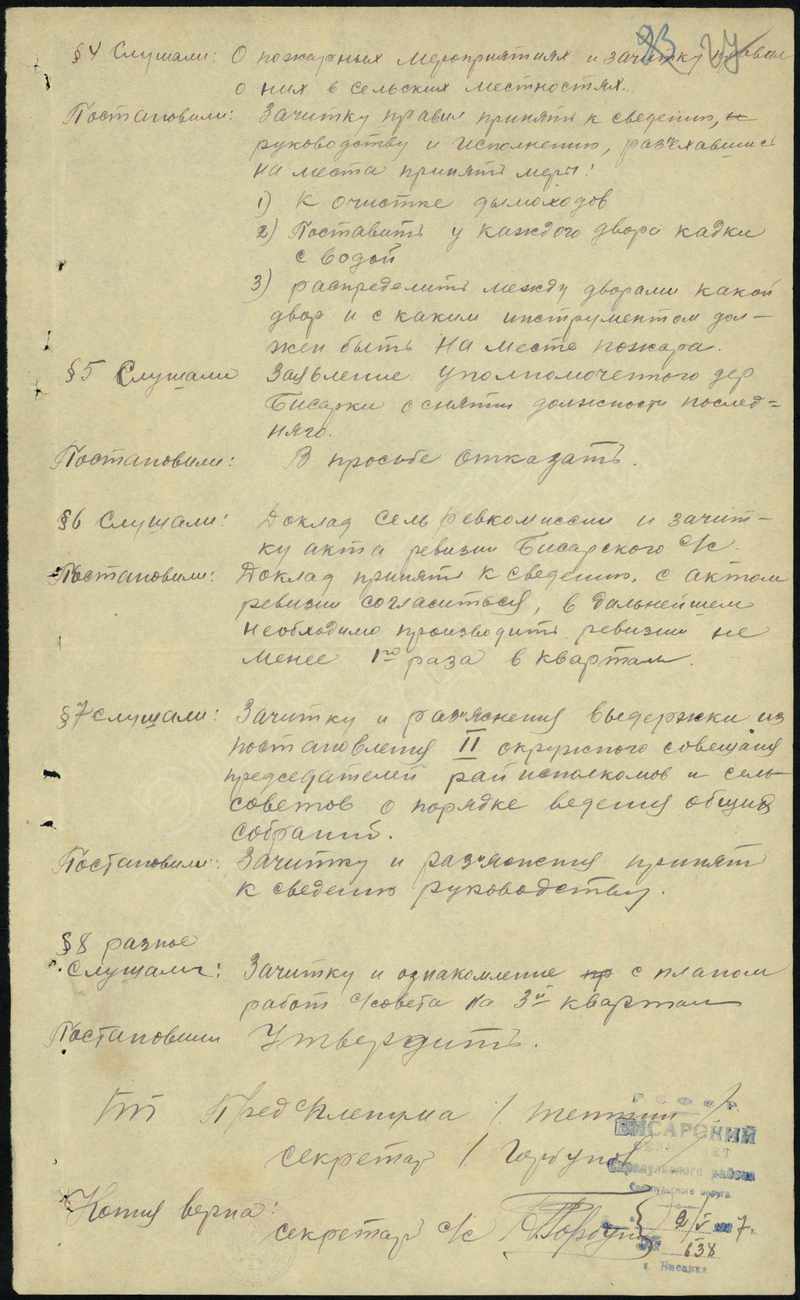 83 24
§4 Слушали: О пожарных мероприятиях и зачитку правил
о них в сельских местностях.
Постановили: Зачитку правил принять к сведению,
руководству и исполнению, разъехавшись
на места принять меры:
1) К очистке дымоходов
2) Поставить у каждого двора кадки
с водой
3) распределить между дворами какой
двор и с каким инструментом дол-
жен быть на месте пожара.
§5 Слушали Заявление уполномоченного дер
Бисарки о снятии должности послед-
няго.
Постановили: В просьбе отказать.
§6 Слушали: Доклад Сель Ревкомиссии и зачит-
ку акта ревизии Бисарского с/с.
Постановили: Доклад принять к сведению, с актом
ревизии согласиться, в дальнейшем
необходимо производить ревизии не
менее 1го раза в квартал.
§7 Слушали: Зачитку и разъяснения выдержки из
постановления II окружного совещания
председателей райисполкомов и сель-
советов о порядке ведения общих
собраний.
Постановили: Зачитку и разъяснения принять
к сведению руководству.
§8 разное
Слушали: Зачитку и ознакомление с планом
работ с/совета на 3й квартал
Постановили Утвердить.
Пред Пленума /
секретарь / Горбунов
Копия верна:
секретарь с/с
РСФСР
БИСАРСКИЙ
Сарапульского района
Сарапульского округа
9/V 7.
638